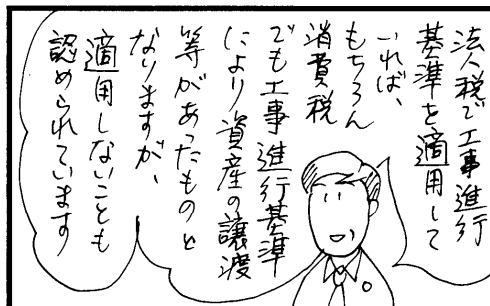 法人税で工事進行
基準を適用して
いれば、
もちろん
消費税
でも工事進行基準
により資産の譲渡
等があったものと
なりますが、
適用しないことも
認められています